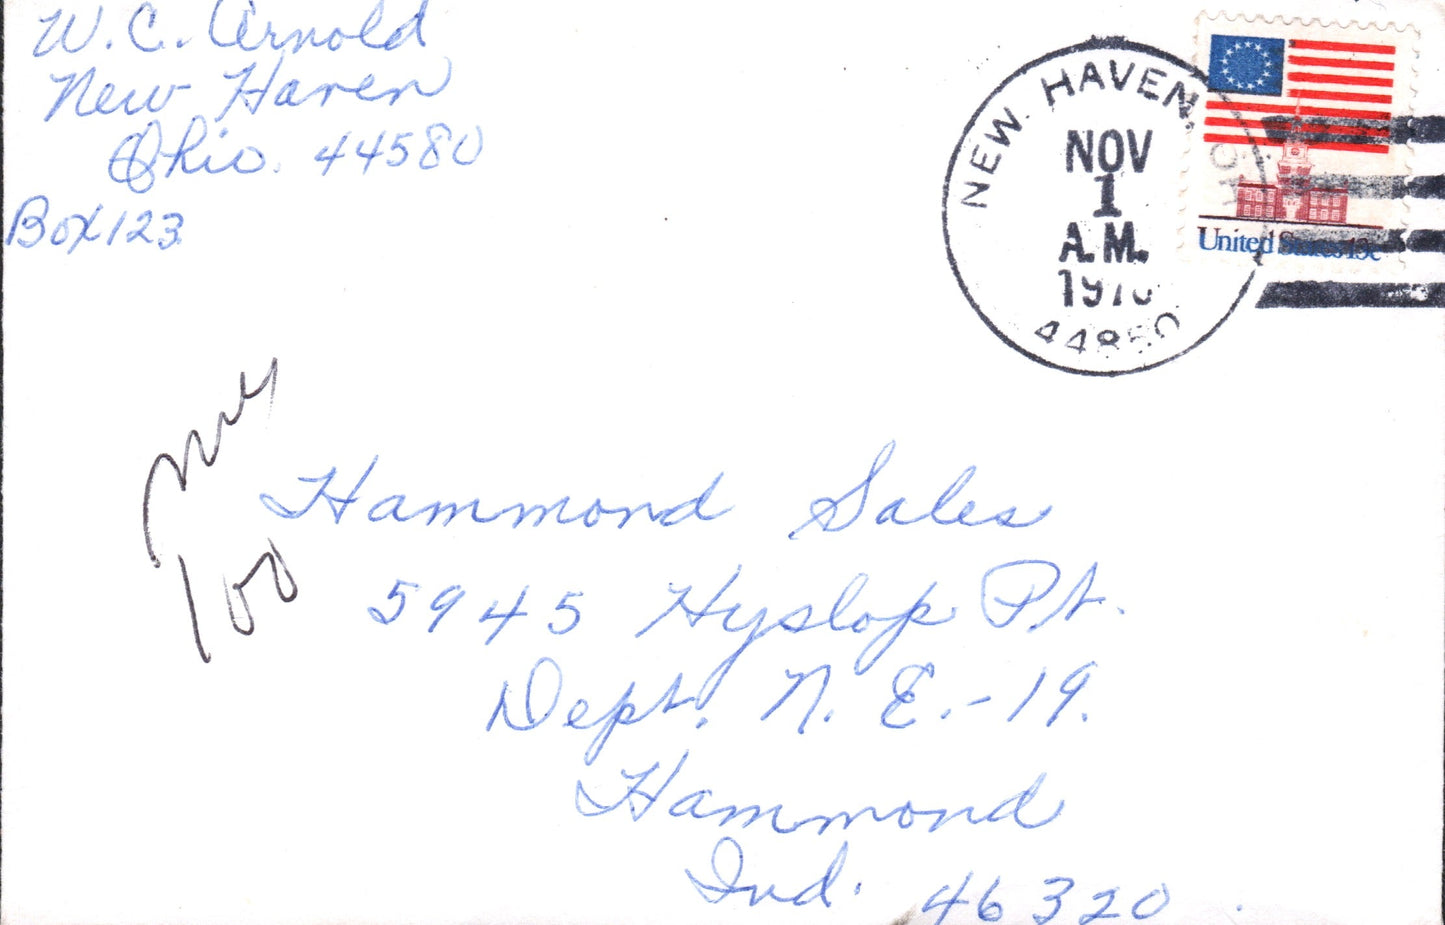 W. C. Arnold
New Haven
Ohio. 44580
Box 123
NEW HAVEN, OH
NOV
1
A.M.
44850
United States 13c
100
Hammond Sales
5945 Hyslop Pl.
Dept. N. E.-19.
Hammond
Ind. 46320